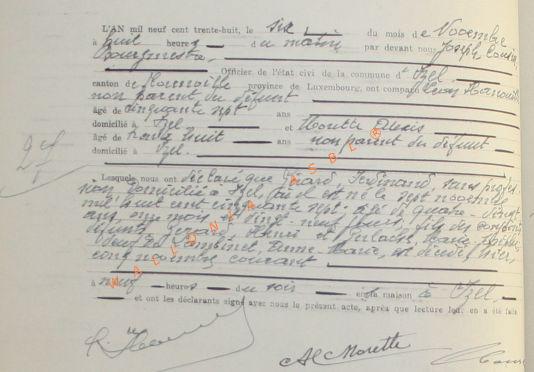 L'AN mil neuf cent trente-huit, le six du mois de Novembre
à huit heures du matin par devant nous Joseph
Bourgmestre,
Officier de l'état civil de la commune d'Izel,
canton de province de Luxembourg, ont comparu
non parent du défunt
âgé de cinquante sept ans
domicilié à Izel et Alexis
âgé de trente huit ans non parent du défunt
domicilié à Izel.
27
Lesquels nous ont déclaré que Gérard, Ferdinand, sans profes-
sion domicilié à Izel, né le sept novembre
mil huit cent cinquante sept âgé de quatre-vingt
ans, onze mois et vingt-neuf jours, fils des conjoints
défunts Gérard, Henri et
veuf de Anne Marie, est décédé hier,
cinq novembre courant
à neuf heures du soir en sa maison à Izel,
et ont les déclarants signé avec nous le présent acte, après que lecture leur en a été faite
WALLONIA ASBL ©
Al Morette